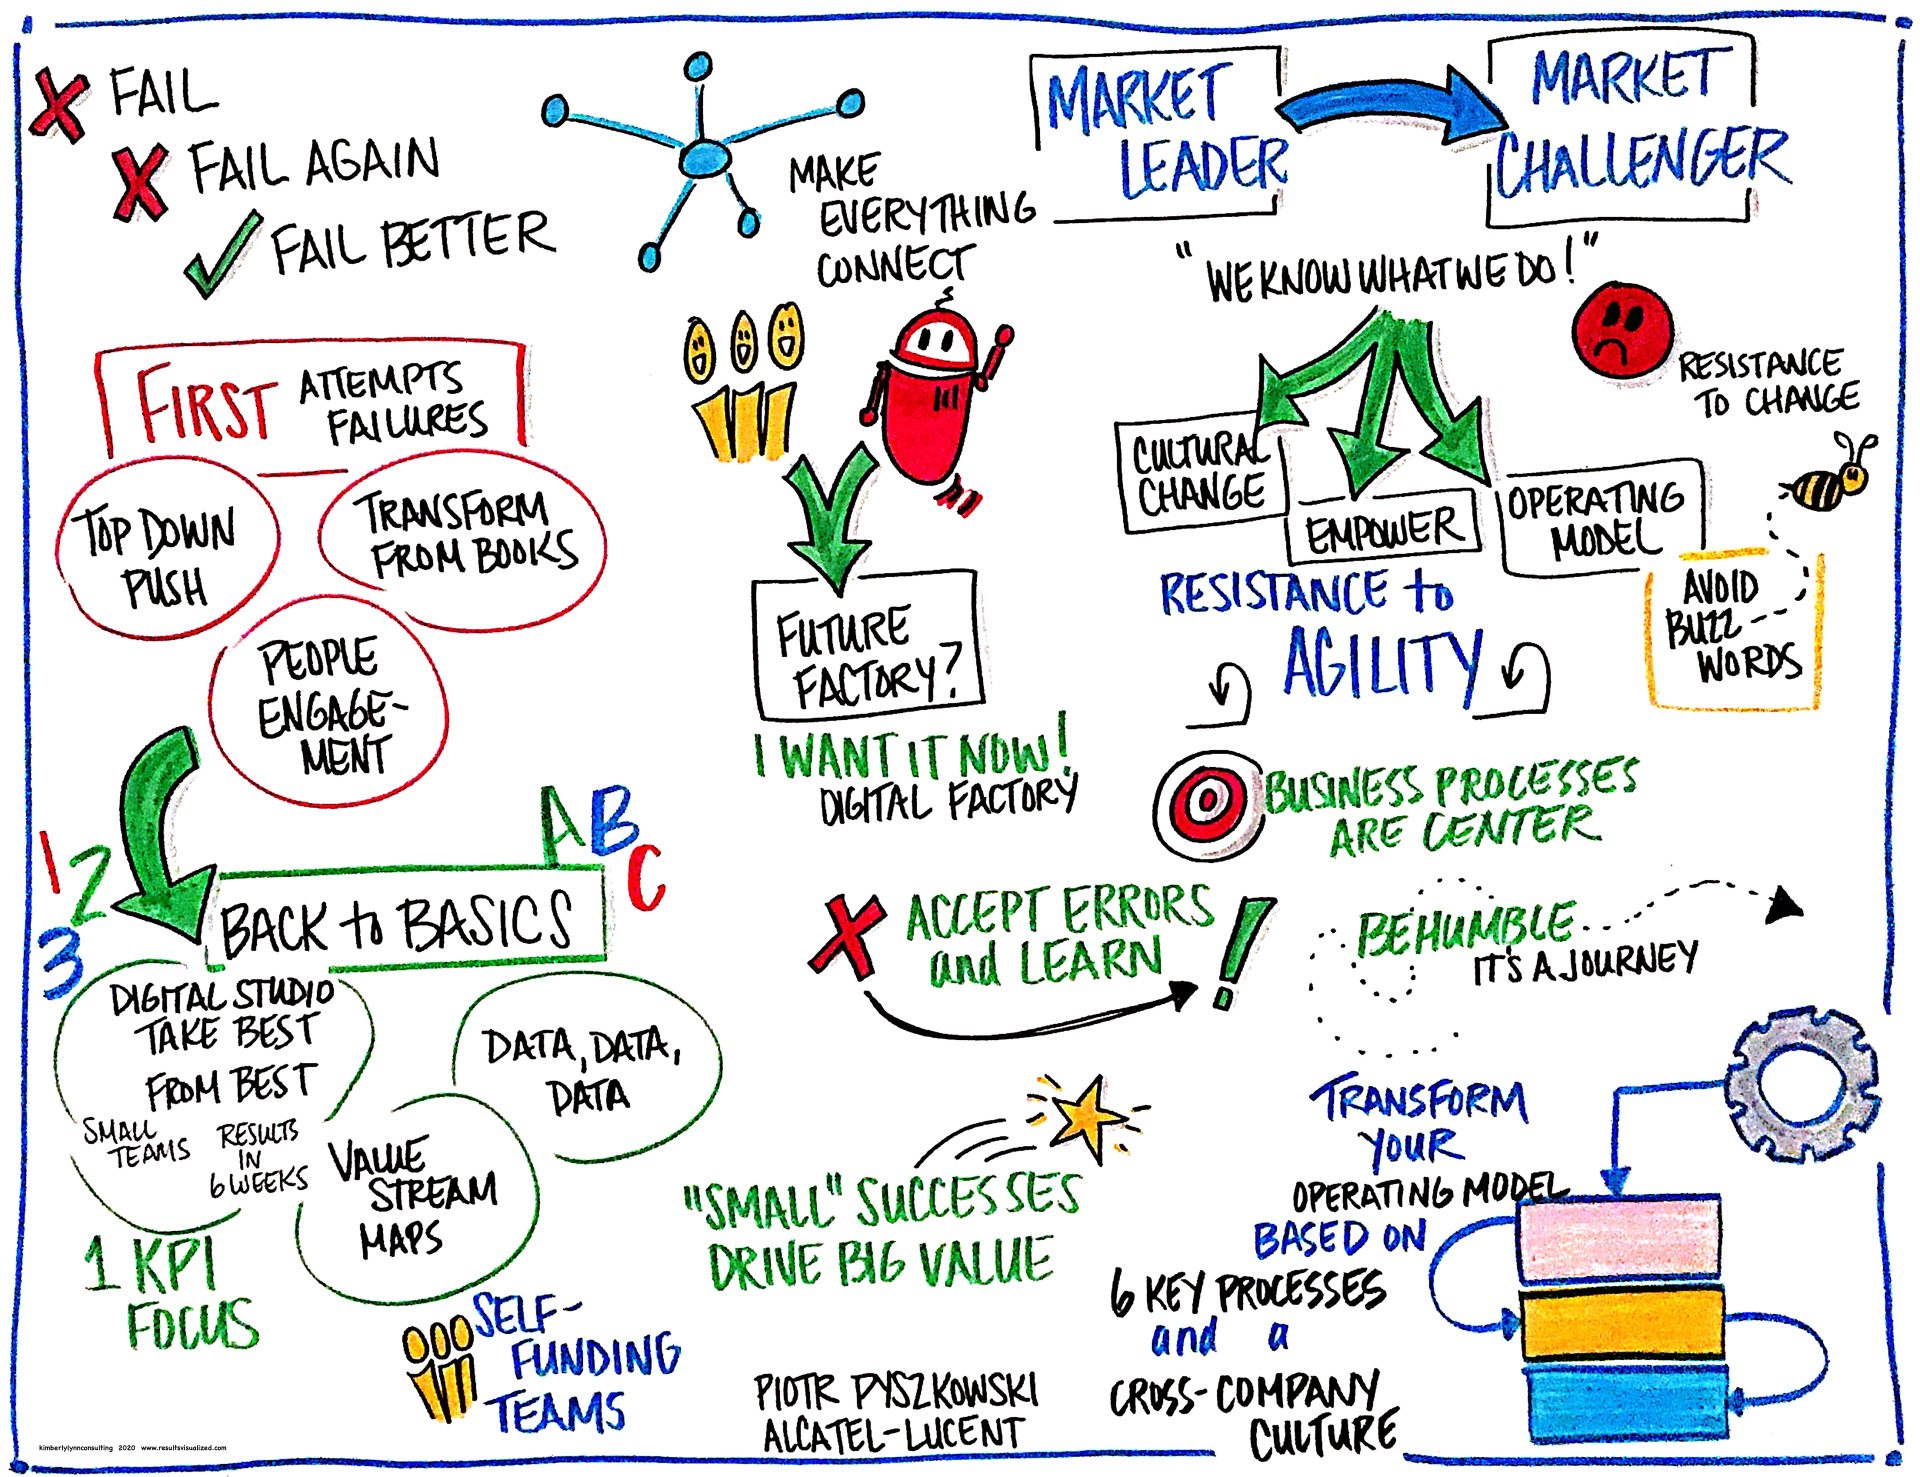 FAIL
FAIL AGAIN
FAIL BETTER
MAKE
EVERYTHING
CONNECT
MARKET
LEADER
MARKET
CHALLENGER
"WE KNOW WHAT WE DO!"
RESISTANCE
TO CHANGE
FIRST ATTEMPTS
FAILURES
TOP DOWN
PUSH
TRANSFORM
FROM BOOKS
PEOPLE
ENGAGE-
MENT
CULTURAL
CHANGE
EMPOWER
OPERATING
MODEL
AVOID
BUZZ-
WORDS
RESISTANCE to
AGILITY
FUTURE
FACTORY?
I WANT IT NOW!
DIGITAL FACTORY
BUSINESS PROCESSES
ARE CENTER
1 2 3
A B C
BACK to BASICS
DIGITAL STUDIO
TAKE BEST
FROM BEST
SMALL
TEAMS
RESULTS
IN
6 WEEKS
DATA, DATA,
DATA
VALUE
STREAM
MAPS
1 KPI
FOCUS
SELF-
FUNDING
TEAMS
ACCEPT ERRORS
and LEARN
!
BE HUMBLE
IT'S A JOURNEY
"SMALL" SUCCESSES
DRIVE BIG VALUE
TRANSFORM
YOUR
OPERATING MODEL
BASED ON
6 KEY PROCESSES
and a
CROSS-COMPANY
CULTURE
PIOTR PYSZKOWSKI
ALCATEL-LUCENT
kimberlylynnconsulting 2020 www.resultsvisualized.com